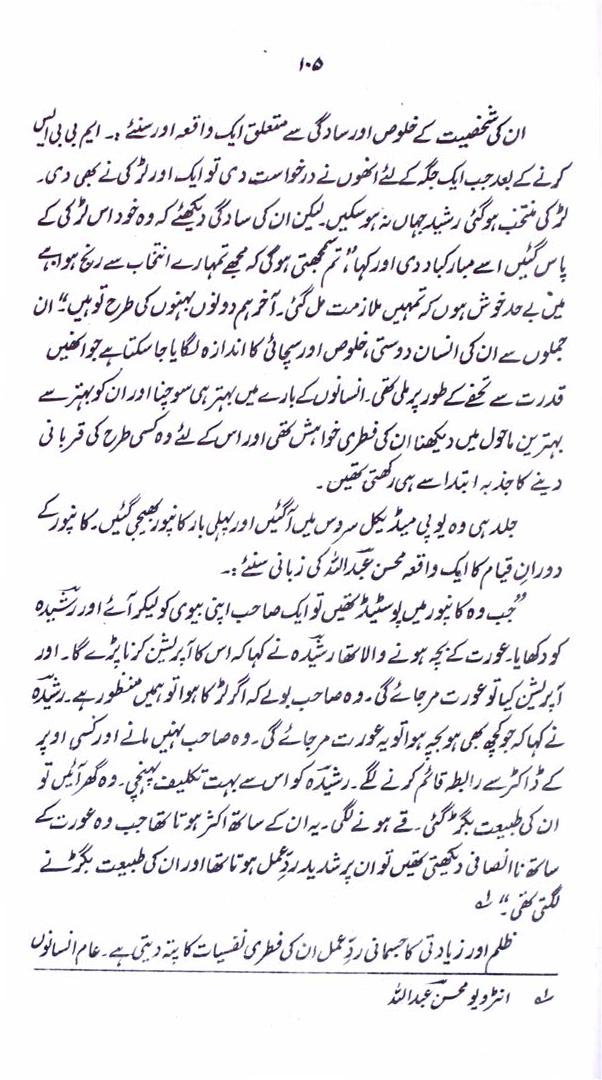 ۱۰۵
ان کی شخصیت کے خلوص اور سادگی سے متعلق ایک واقعہ اور سنئے :۔ ایم بی بی ایس
کرنے کے بعد جب ایک جگہ کے لئے انھوں نے درخواست دی تو ایک اور لڑکی نے بھی دی۔
لڑکی منتخب ہو گئی رشید جہاں نہ ہو سکیں۔ لیکن ان کی سادگی دیکھئے کہ وہ خود اس لڑکی کے
پاس گئیں اسے مبارکباد دی اور کہا ”تم سمجھتی ہو گی کہ مجھے تمہارے انتخاب سے رنج ہوا ہے
میں بے حد خوش ہوں کہ تمہیں ملازمت مل گئی۔ آخر ہم دونوں بہنوں کی طرح تو ہیں۔“ ان
جملوں سے ان کی انسان دوستی، خلوص اور سچائی کا اندازہ لگایا جا سکتا ہے جو انھیں
قدرت سے تحفے کے طور پر ملی تھی۔ انسانوں کے بارے میں بہتر ہی سوچنا اور ان کو بہتر سے
بہترین ماحول میں دیکھنا ان کی فطری خواہش تھی اور اس کے لئے وہ کسی طرح کی قربانی
دینے کا جذبہ ابتدا سے ہی رکھتی تھیں۔
جلد ہی وہ یو پی میڈیکل سروس میں آ گئیں اور پہلی بار کانپور بھیجی گئیں۔ کانپور کے
دورانِ قیام کا ایک واقعہ محسن عبداللہ کی زبانی سنئے :۔
”جب وہ کانپور میں پوسٹیڈ تھیں تو ایک صاحب اپنی بیوی کو لیکر آئے اور رشیدہ
کو دکھایا۔ عورت کے بچہ ہونے والا تھا رشیدہ نے کہا کہ اس کا آپریشن کرنا پڑے گا۔ اور
آپریشن کیا تو عورت مر جائے گی۔ وہ صاحب بولے کہ اگر لڑکا ہوا تو ہمیں منظور ہے۔ رشیدہ
نے کہا کہ جو کچھ بھی ہو بچہ ہوا تو یہ عورت مر جائے گی۔ وہ صاحب نہیں مانے اور کسی اوپر
کے ڈاکٹر سے رابطہ قائم کرنے لگے۔ رشیدہ کو اس سے بہت تکلیف پہنچی۔ وہ گھر آئیں تو
ان کی طبیعت بگڑ گئی۔ قے ہونے لگی۔ یہ ان کے ساتھ اکثر ہوتا تھا جب وہ عورت کے
ساتھ ناانصافی دیکھتی تھیں تو ان پر شدید ردِّ عمل ہوتا تھا اور ان کی طبیعت بگڑنے
لگتی تھی۔“ ؂۱
ظلم اور زیادتی کا جسمانی ردِّ عمل ان کی فطری نفسیات کا پتہ دیتی ہے۔ عام انسانوں
؂۱ انٹرویو محسن عبداللہ